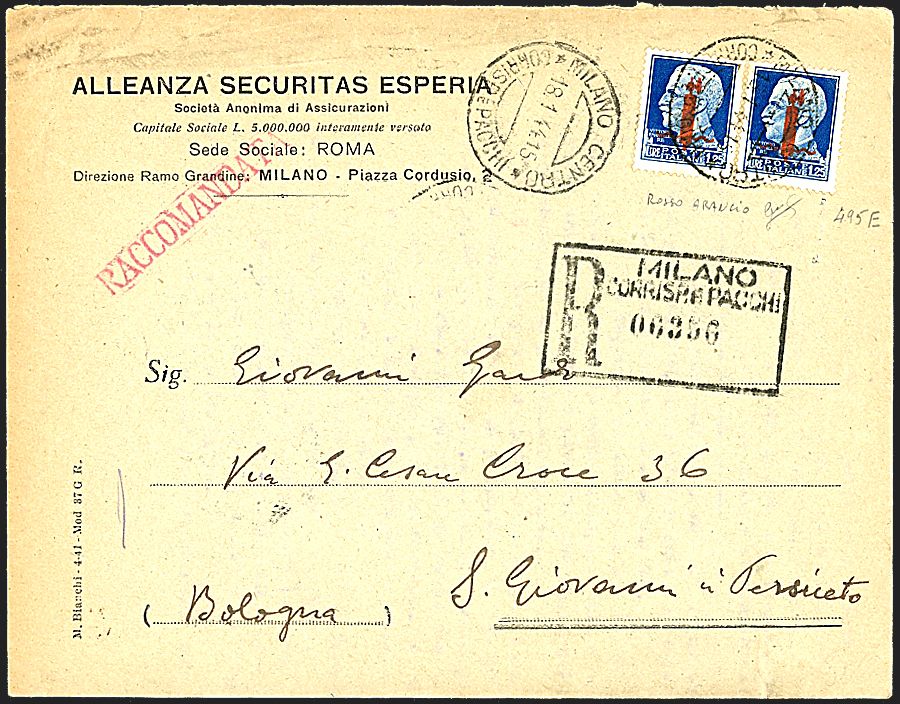 ALLEANZA SECURITAS ESPERIA
Società Anonima di Assicurazioni
Capitale Sociale L. 5.000.000 interamente versato
Sede Sociale: ROMA
Direzione Ramo Grandine: MILANO - Piazza Cordusio,
RACCOMANDATA
MILANO CENTRO
CORRISP. E PACCHI
18.1.44.15
POSTE ITALIANE
LIRE 1,25
POSTE ITALIANE
LIRE 1,25
ROSSO ARANCIO
495E
R
MILANO
CORRISP. E PACCHI
00396
Sig. Giovanni
Via G. Cesare Croce 36
S. Giovanni in Persiceto
(Bologna)
M. Bianchi - 4-41 - Mod 37 G R.